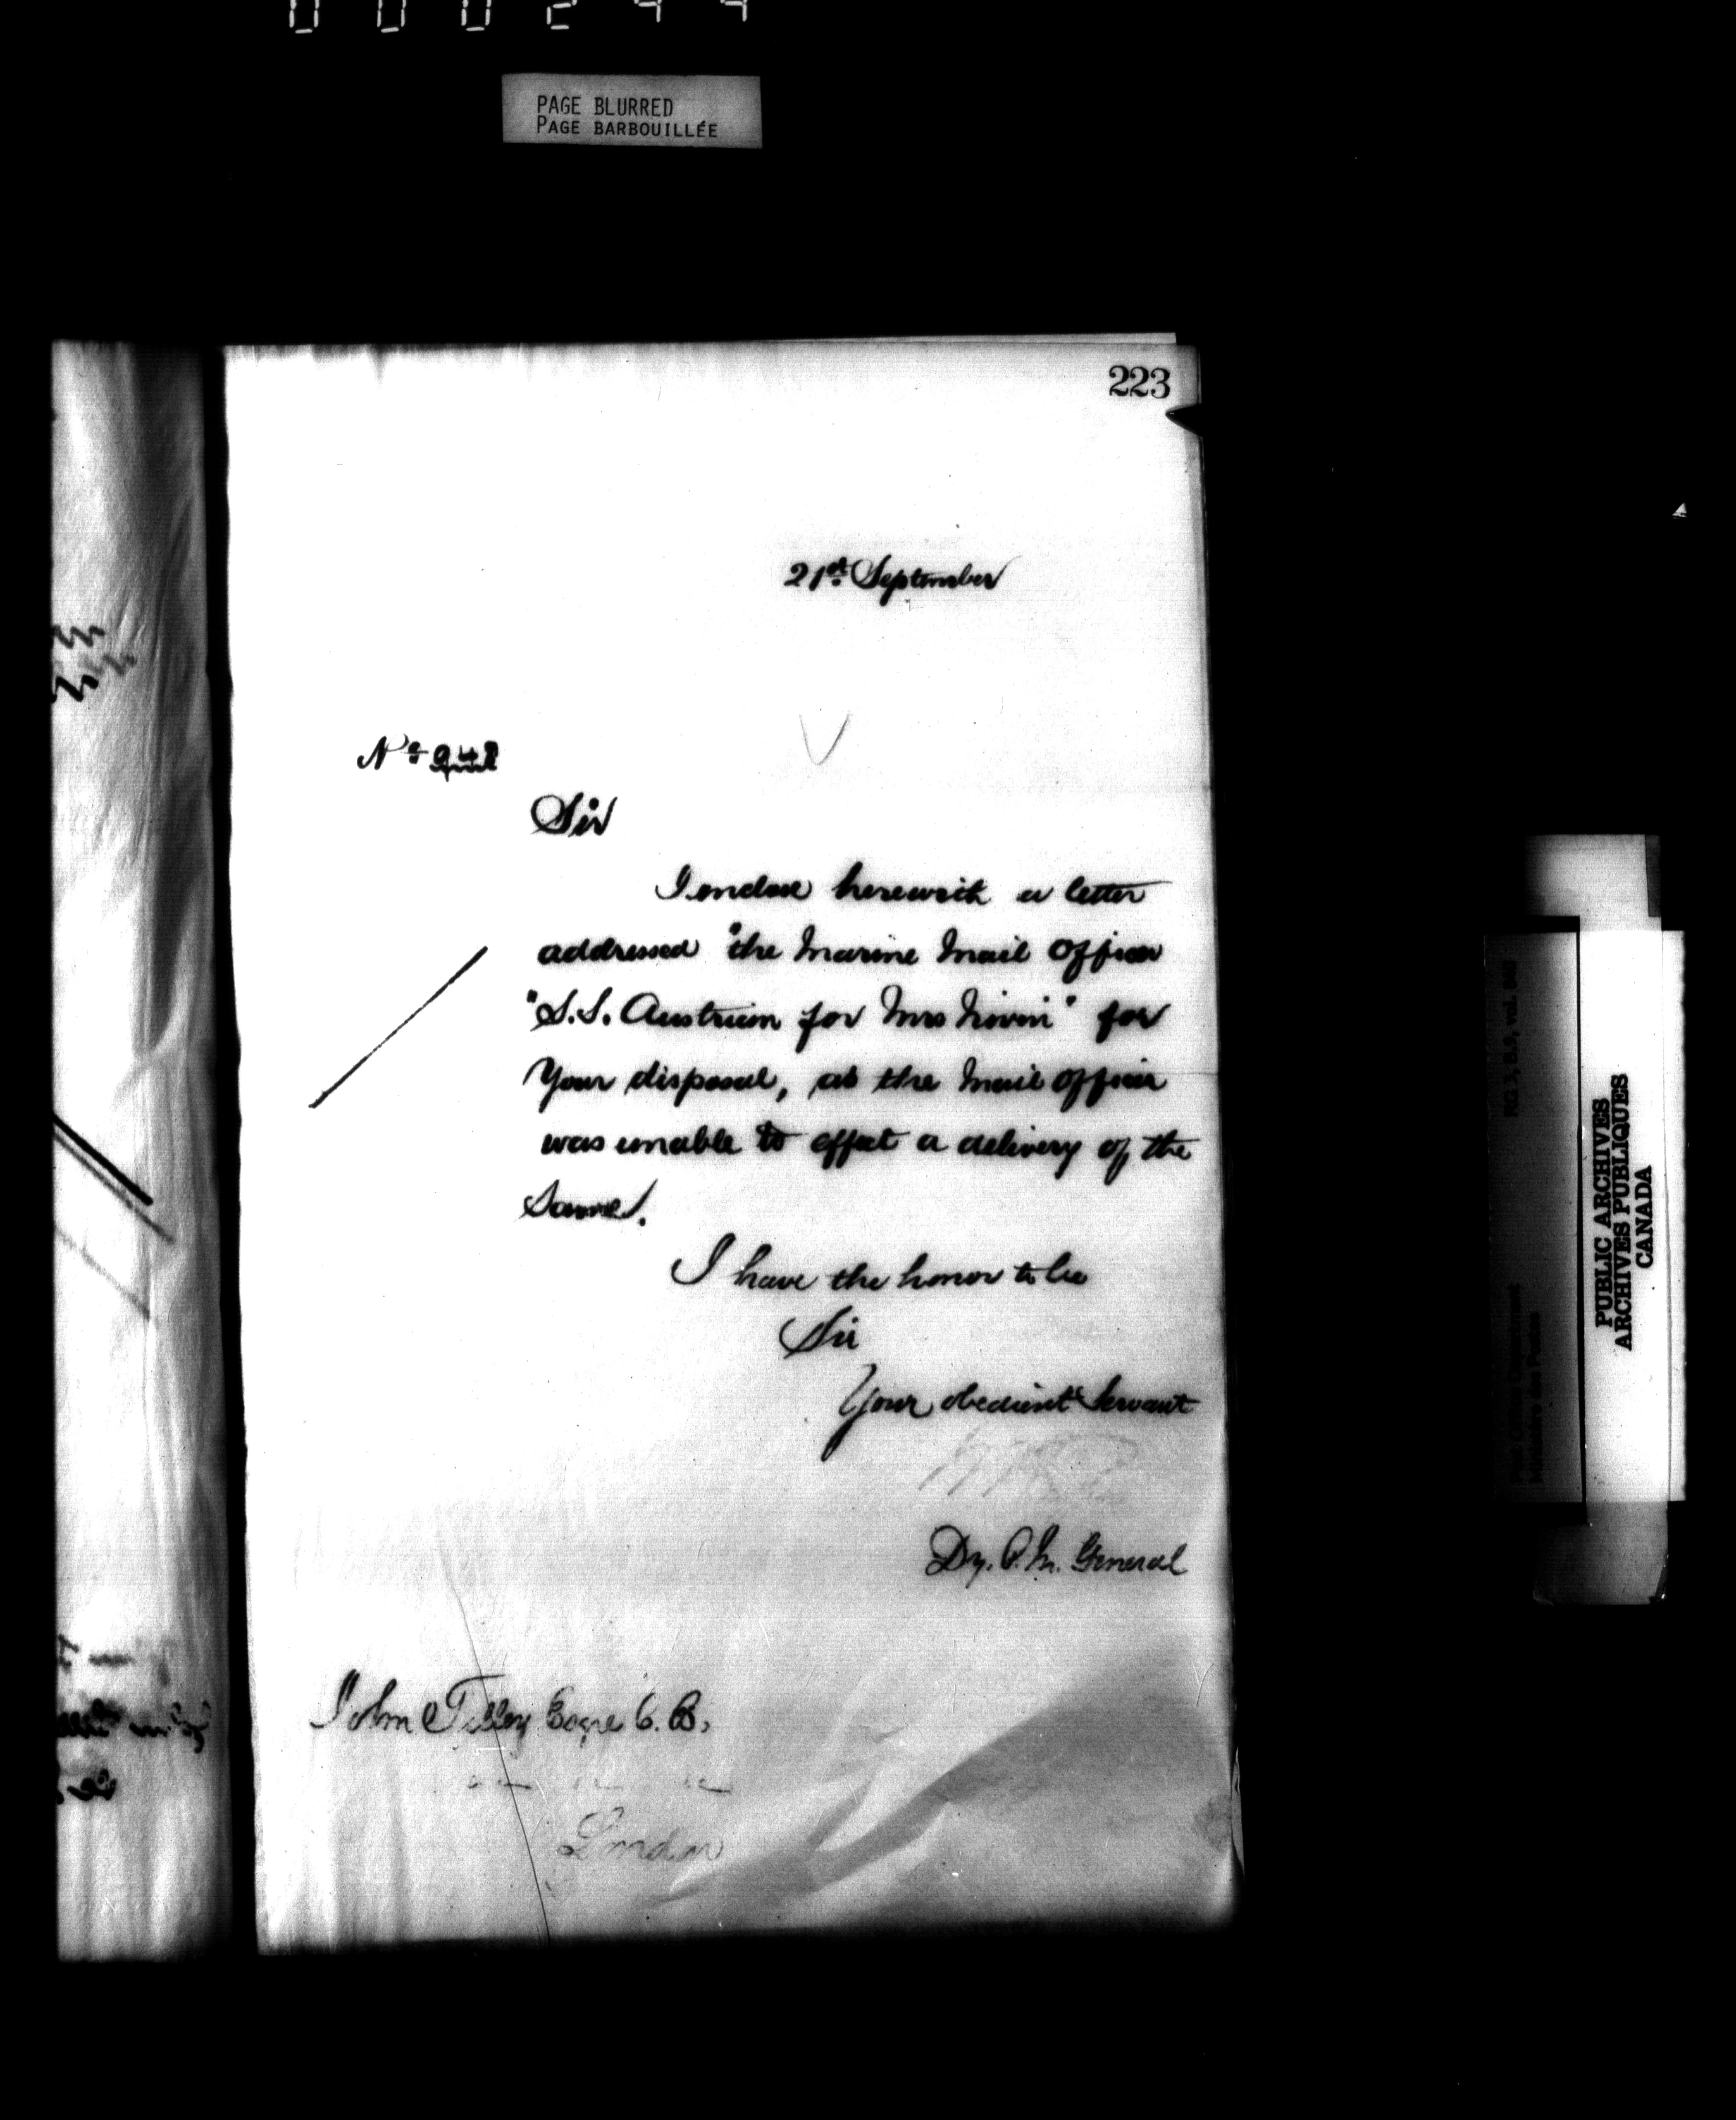 PAGE BLURRED
PAGE BARBOUILLÉE
223
21st September
No 948
Sir
I enclose herewith a letter
addressed "the Marine Mail Officer
"S.S. Austrian for Mrs " for
Your disposal, as the Mail Officer
was unable to effect a delivery of the
Same.
I have the honor to be
Sir
Your obedient Servant
Dy. P. M. General
John Tilley Esqre C. B.
London
RG 3, B.9, vol.
Post Office Department
Ministère des Postes
PUBLIC ARCHIVES
ARCHIVES PUBLIQUES
CANADA